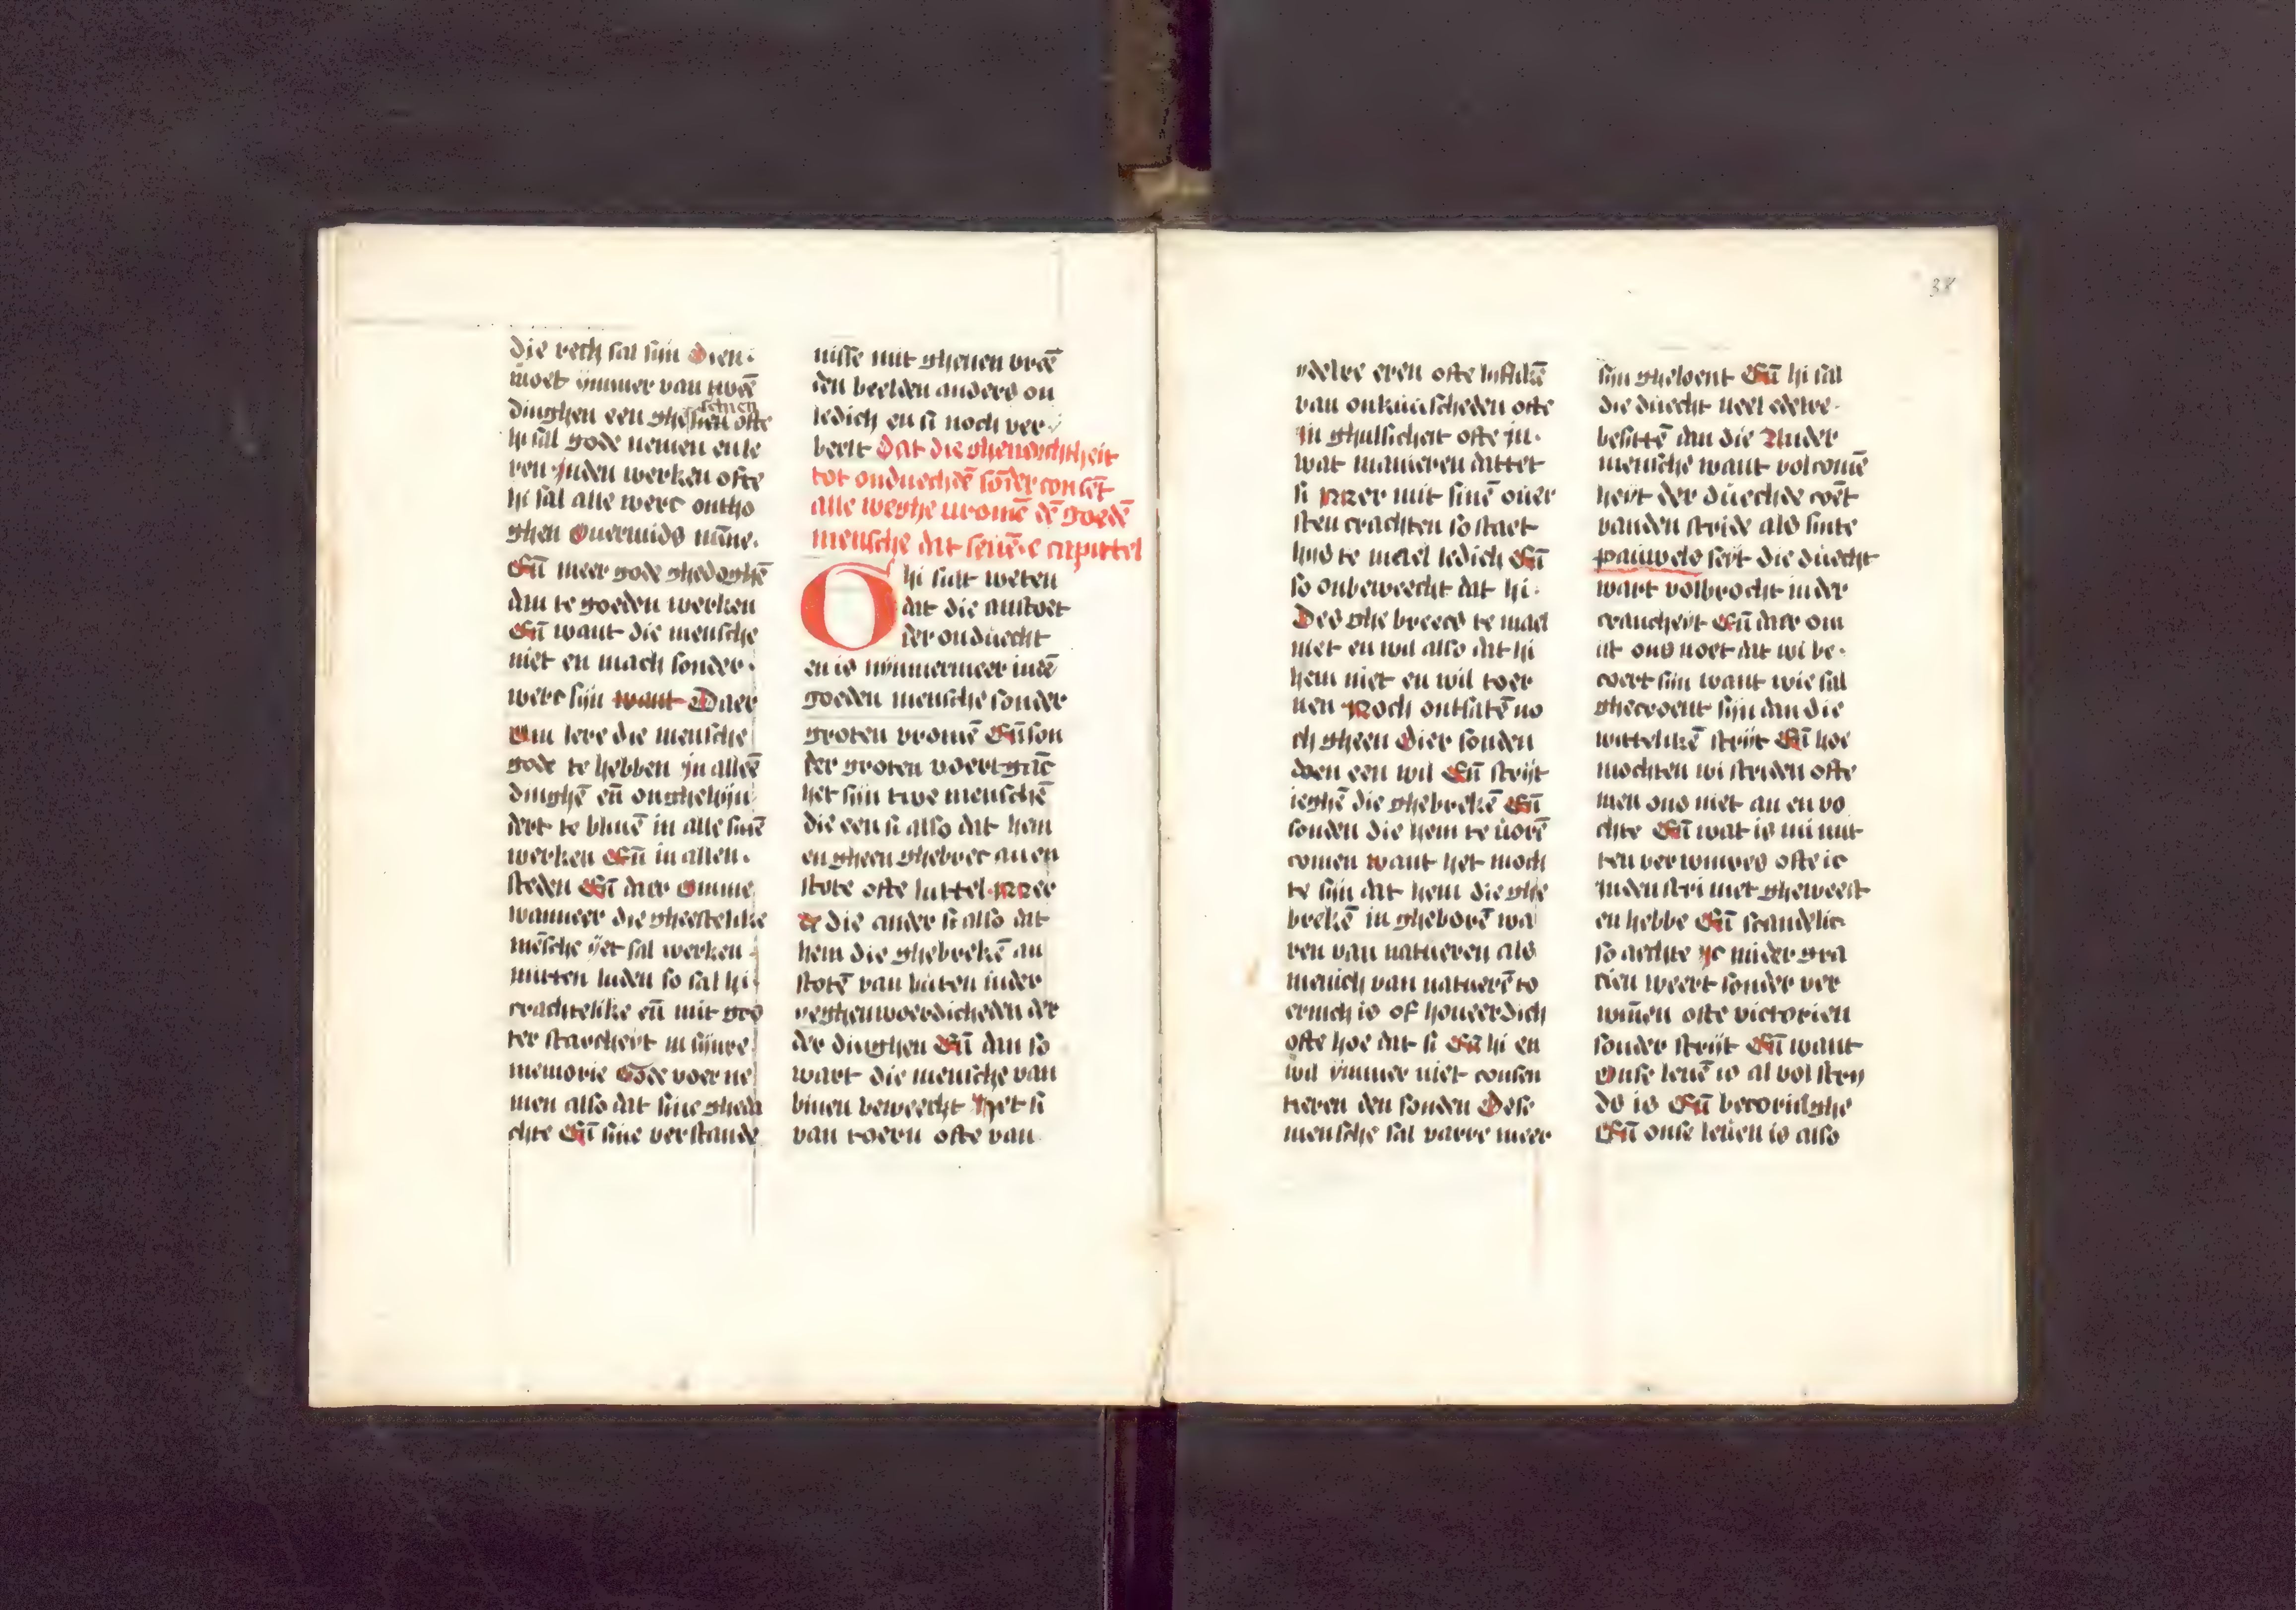 die rech sal sijn Dien·
moet ymmer van tweē
dinghen een ghe scien ofte
hi sal gode nemen en le
ren jnden werken ofte
hi sal alle werc ontho
ghen Ouermids nūne·
Eñ meer gode ghedoghē
dan te goeden werken
Eñ want die mensche
niet en mach sonder·
werc sijn want Daer
Om lere die mensche
gode te hebben jn alleē
dinghē eñ onghehijn
dert te bliuē in alle sinē
werken Eñ in allen·
steden Eñ daer omme
wanneer die gheestelike
mēsche yet sal werken
mitten luden so sal hi·
crachtelike eñ mit gro
ter starcheyt in sijnre
memorie Gode voer ne
men also dat sine gheda
chte Eñ sine verstande
nisse mit ghenen vreē
den beelden anders on
ledich en si noch ver·
beelt Dat die gheneichtheit
tot onduechdē sōder consēt
alle weghe uromē dē goedē
mensche dat seuē·e capittel
Ghi sult weten
dat die anstoet
der onduecht
en is nymmermeer indē
goeden mensche sonder
groten vromē Eñ son
der groten voertganc
het sijn twe menschē
die een si also dat hem
en gheen ghebrec an en
stote ofte luttel Mer
& die ander si also dat
hem die ghebrekē an
stotē van buten inder
yeghenwoerdicheden der
der dinghen Eñ dan so
wart die mensche van
binen beweecht Het si
van toern ofte van
ydelre eren ofte
van onkuuscheden ofte
jn ghulsicheit ofte jn·
wat manieren dattet
si Mer mit sinē ouer
sten crachten so staet
hijs te mael ledich Eñ
so onbeweecht dat hi·
Des ghe breecs te mael
niet en wil also dat hi
hem niet en wil toer
nen Noch onthatē no
ch gheen Dier sonden
doen een wil Eñ strijt
ieghē die ghebrekē Eñ
sonden die hem te uorē
comen want het moch
te sijn dat hem die ghe
brekē in gheborē wa
ren van natueren als
menich van naturē to
ernich is of houeerdich
ofte hoe dat si Eñ hi en
wil ymmer niet consen
tieren den sonden Dese
mensche sal varre meer
sijn gheloent Eñ hi sal
die duecht ueel edelre·
besittē dan die Ander
mensche want volcomē
heyt der duechde coēt
vanden stride als sinte
pauwels seyt die duecht
wart volbrocht inder
cranckeyt Eñ daer om
ist ons noet dat wi be·
coert sijn want wie sal
ghecroent sijn dan die
wittelikē strijt Eñ hoe
mochten wi striden ofte
men ons niet an en vo
chte Eñ wat is mi nut
ten verwinres ofte ic
inden stri niet gheweest
en hebbe Eñ scandelic·
so aechte yc mi der gra
cien weert sonder ver
wiñen ofte victorien
sonder strijt Eñ want
Onse leuē is al vol stry
ds is Eñ becoringhe
Eñ onse leuen is also
38